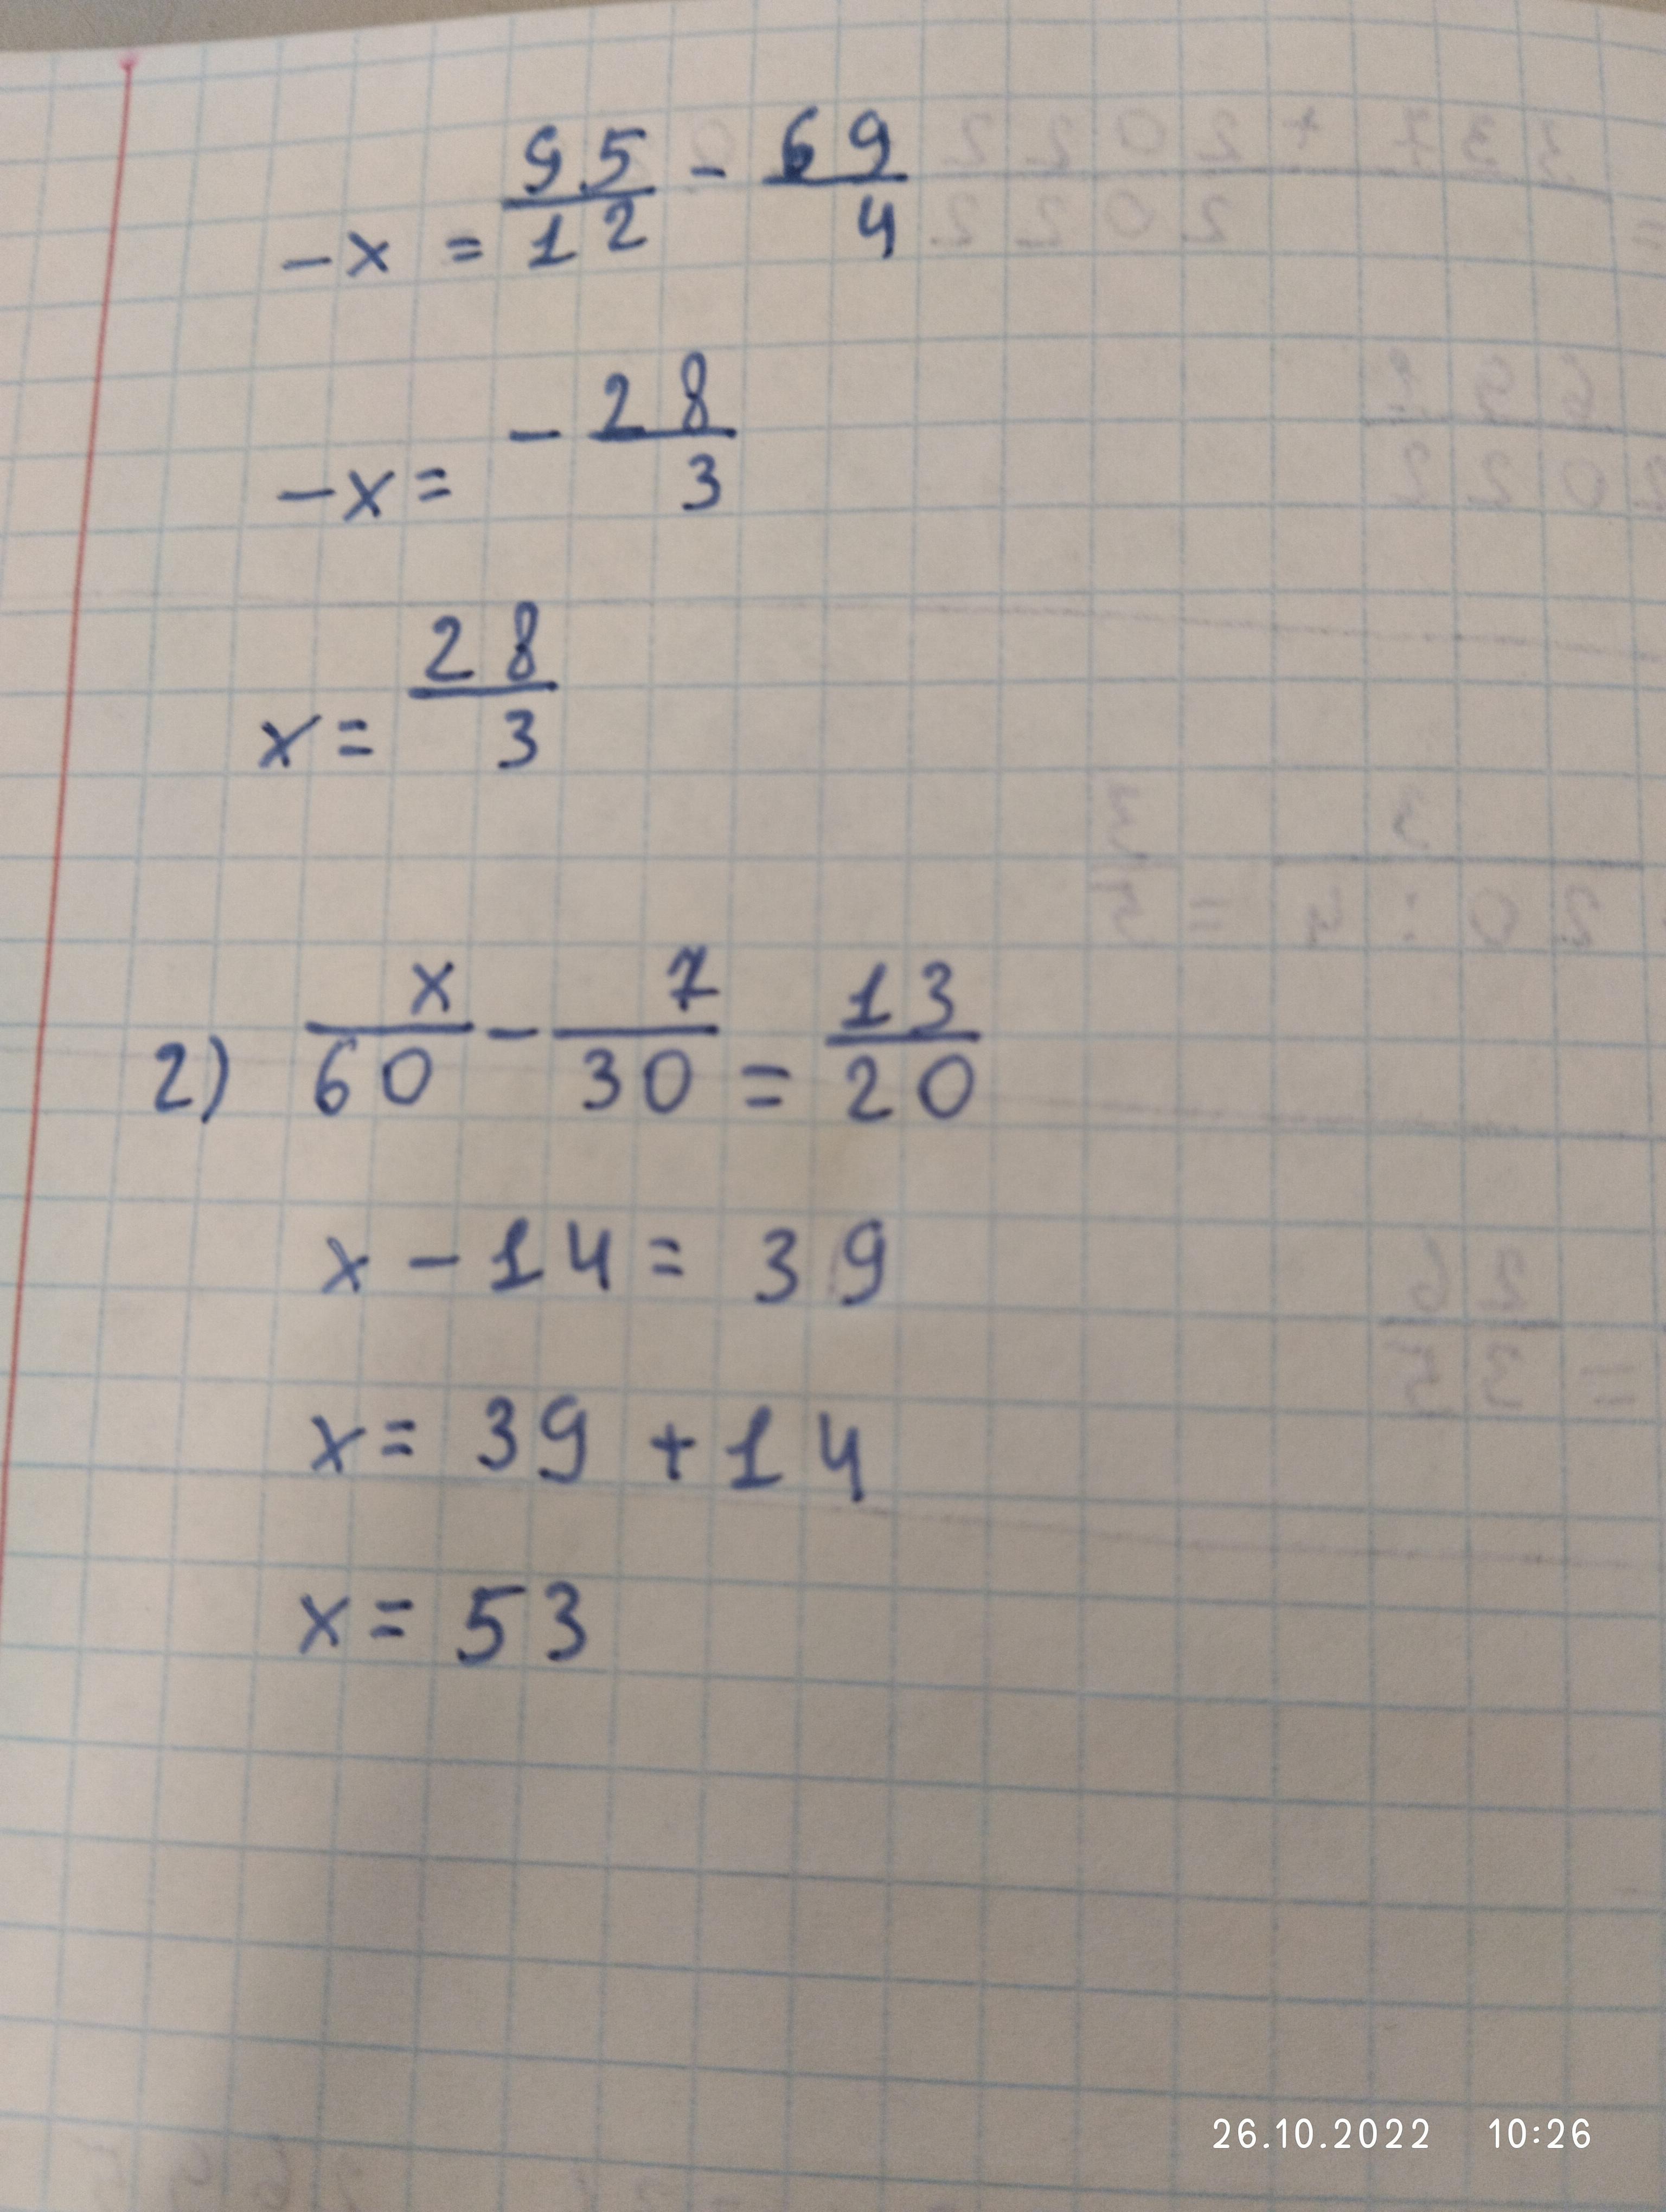 -x = 95/12 - 69/4
-x = - 28/3
x = 28/3
2) x/60 - 7/30 = 13/20
x - 14 = 39
x = 39 + 14
x = 53
26.10.2022 10:26